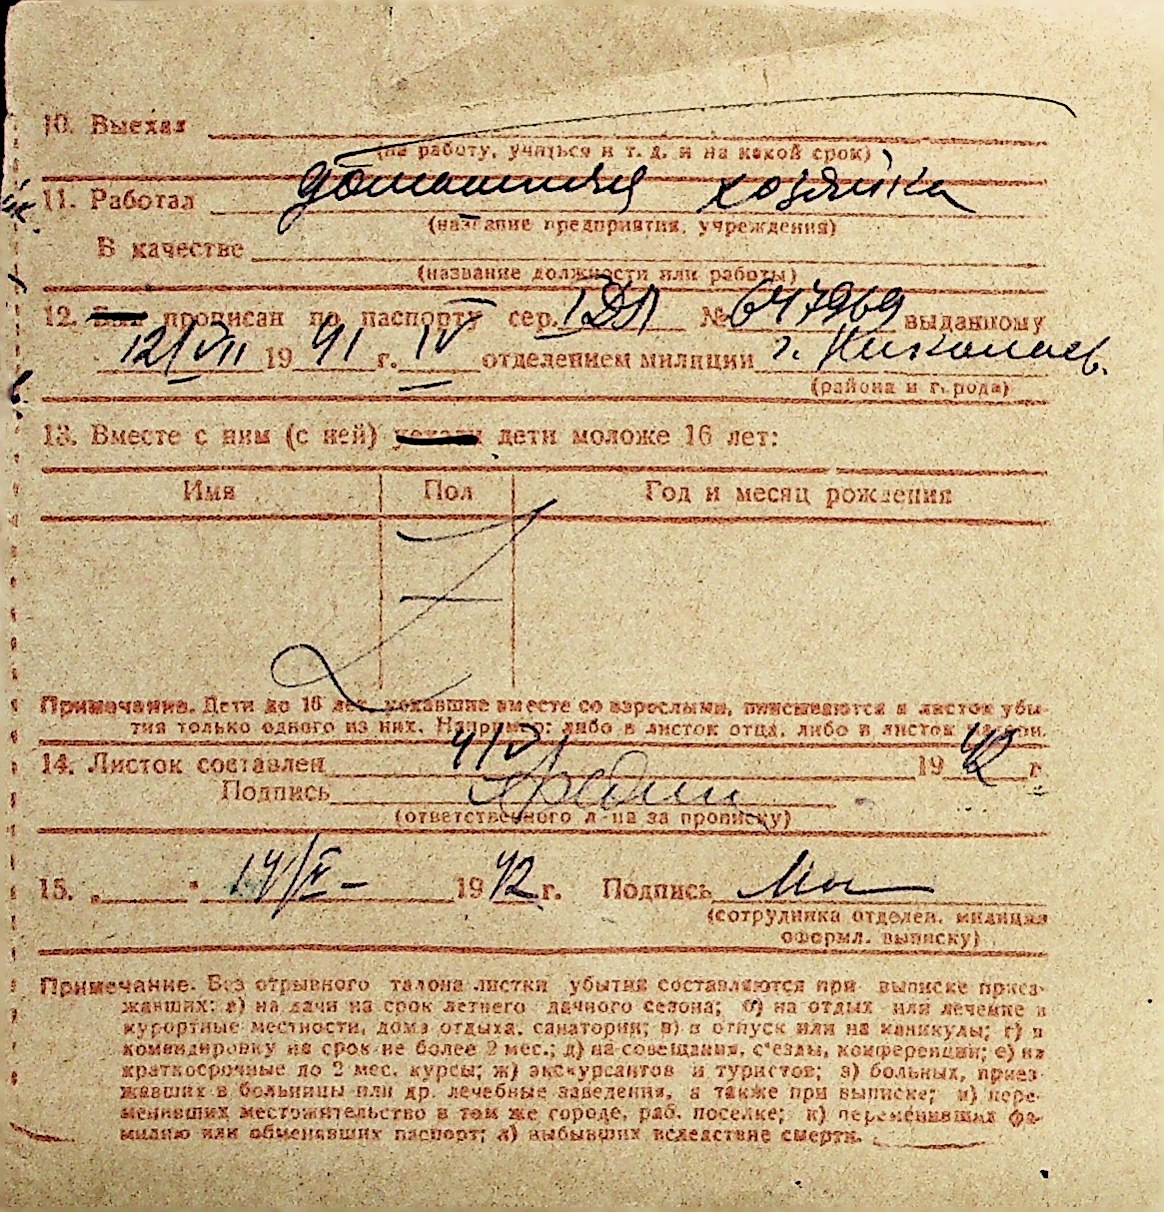 10. Выехал
(на работу, учиться и т. д. и на какой срок)
11. Работал домашняя хозяйка
(название предприятия, учреждения)
В качестве
(название должности или работы)
12. Был прописан по паспорту сер. № 647969 выданному
12/VII 19 41 г. IV отделением милиции г. Николаев.
(района и города)
13. Вместе с ним (с ней) уехали дети моложе 16 лет:
Имя Пол Год и месяц рождения
Примечание. Дети до 16 лет, уехавшие вместе со взрослыми, вписываются в листок убы-
тия только одного из них. Например: либо в листок отца, либо в листок матери.
14. Листок составлен 19 42 г.
Подпись
(ответственного л-ца за прописку)
15. „ " 19 42 г. Подпись
(сотрудника отделен. милиции
оформл. выписку)
Примечание. Без отрывного талона листки убытия составляются при выписке приез-
жавших: а) на дачи на срок летнего дачного сезона; б) на отдых или лечение в
курортные местности, дома отдыха, санатории; в) в отпуск или на каникулы; г) в
командировку на срок не более 2 мес.; д) на совещания, с'езды, конференции; е) на
краткосрочные до 2 мес. курсы; ж) экскурсантов и туристов; з) больных, приез-
жавших в больницы или др. лечебные заведения, а также при выписке; и) пере-
менивших местожительство в том же городе, раб. поселке; к) переменивших фа-
милию или обменявших паспорт; л) выбывших вследствие смерти.